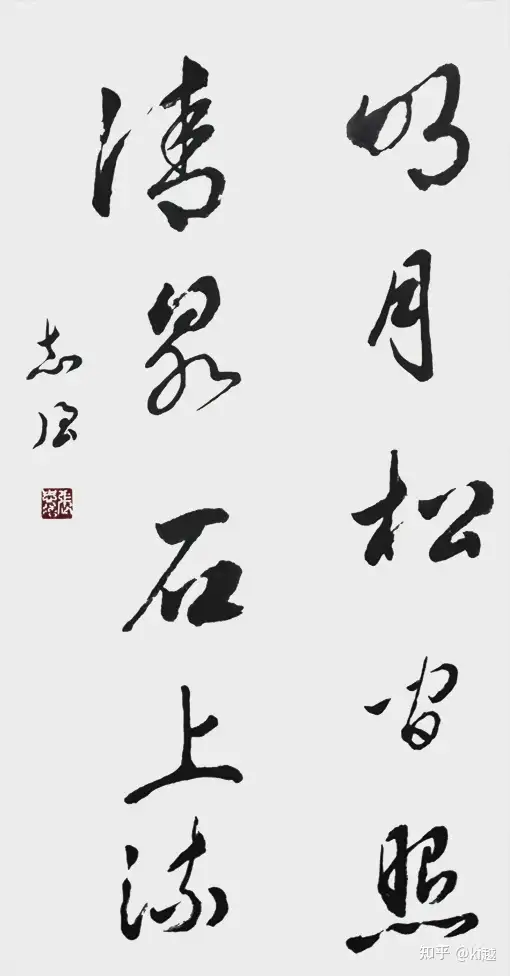 明月松间照
清泉石上流
志
知乎 @ki越